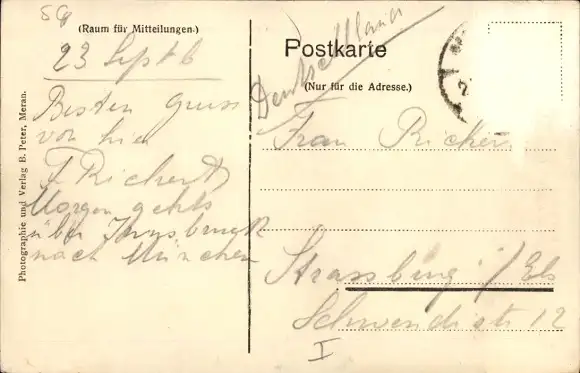 (Raum für Mitteilungen.)
23 Septb
Besten Gruss
von hier
F. Richert
Morgen gehts
über Innsbruck
nach München
Photographie und Verlag B. Peter, Meran.
Postkarte
(Nur für die Adresse.)
Deutschland
Frau Richert
Strassburg i/Els
Schwendistr 12
I